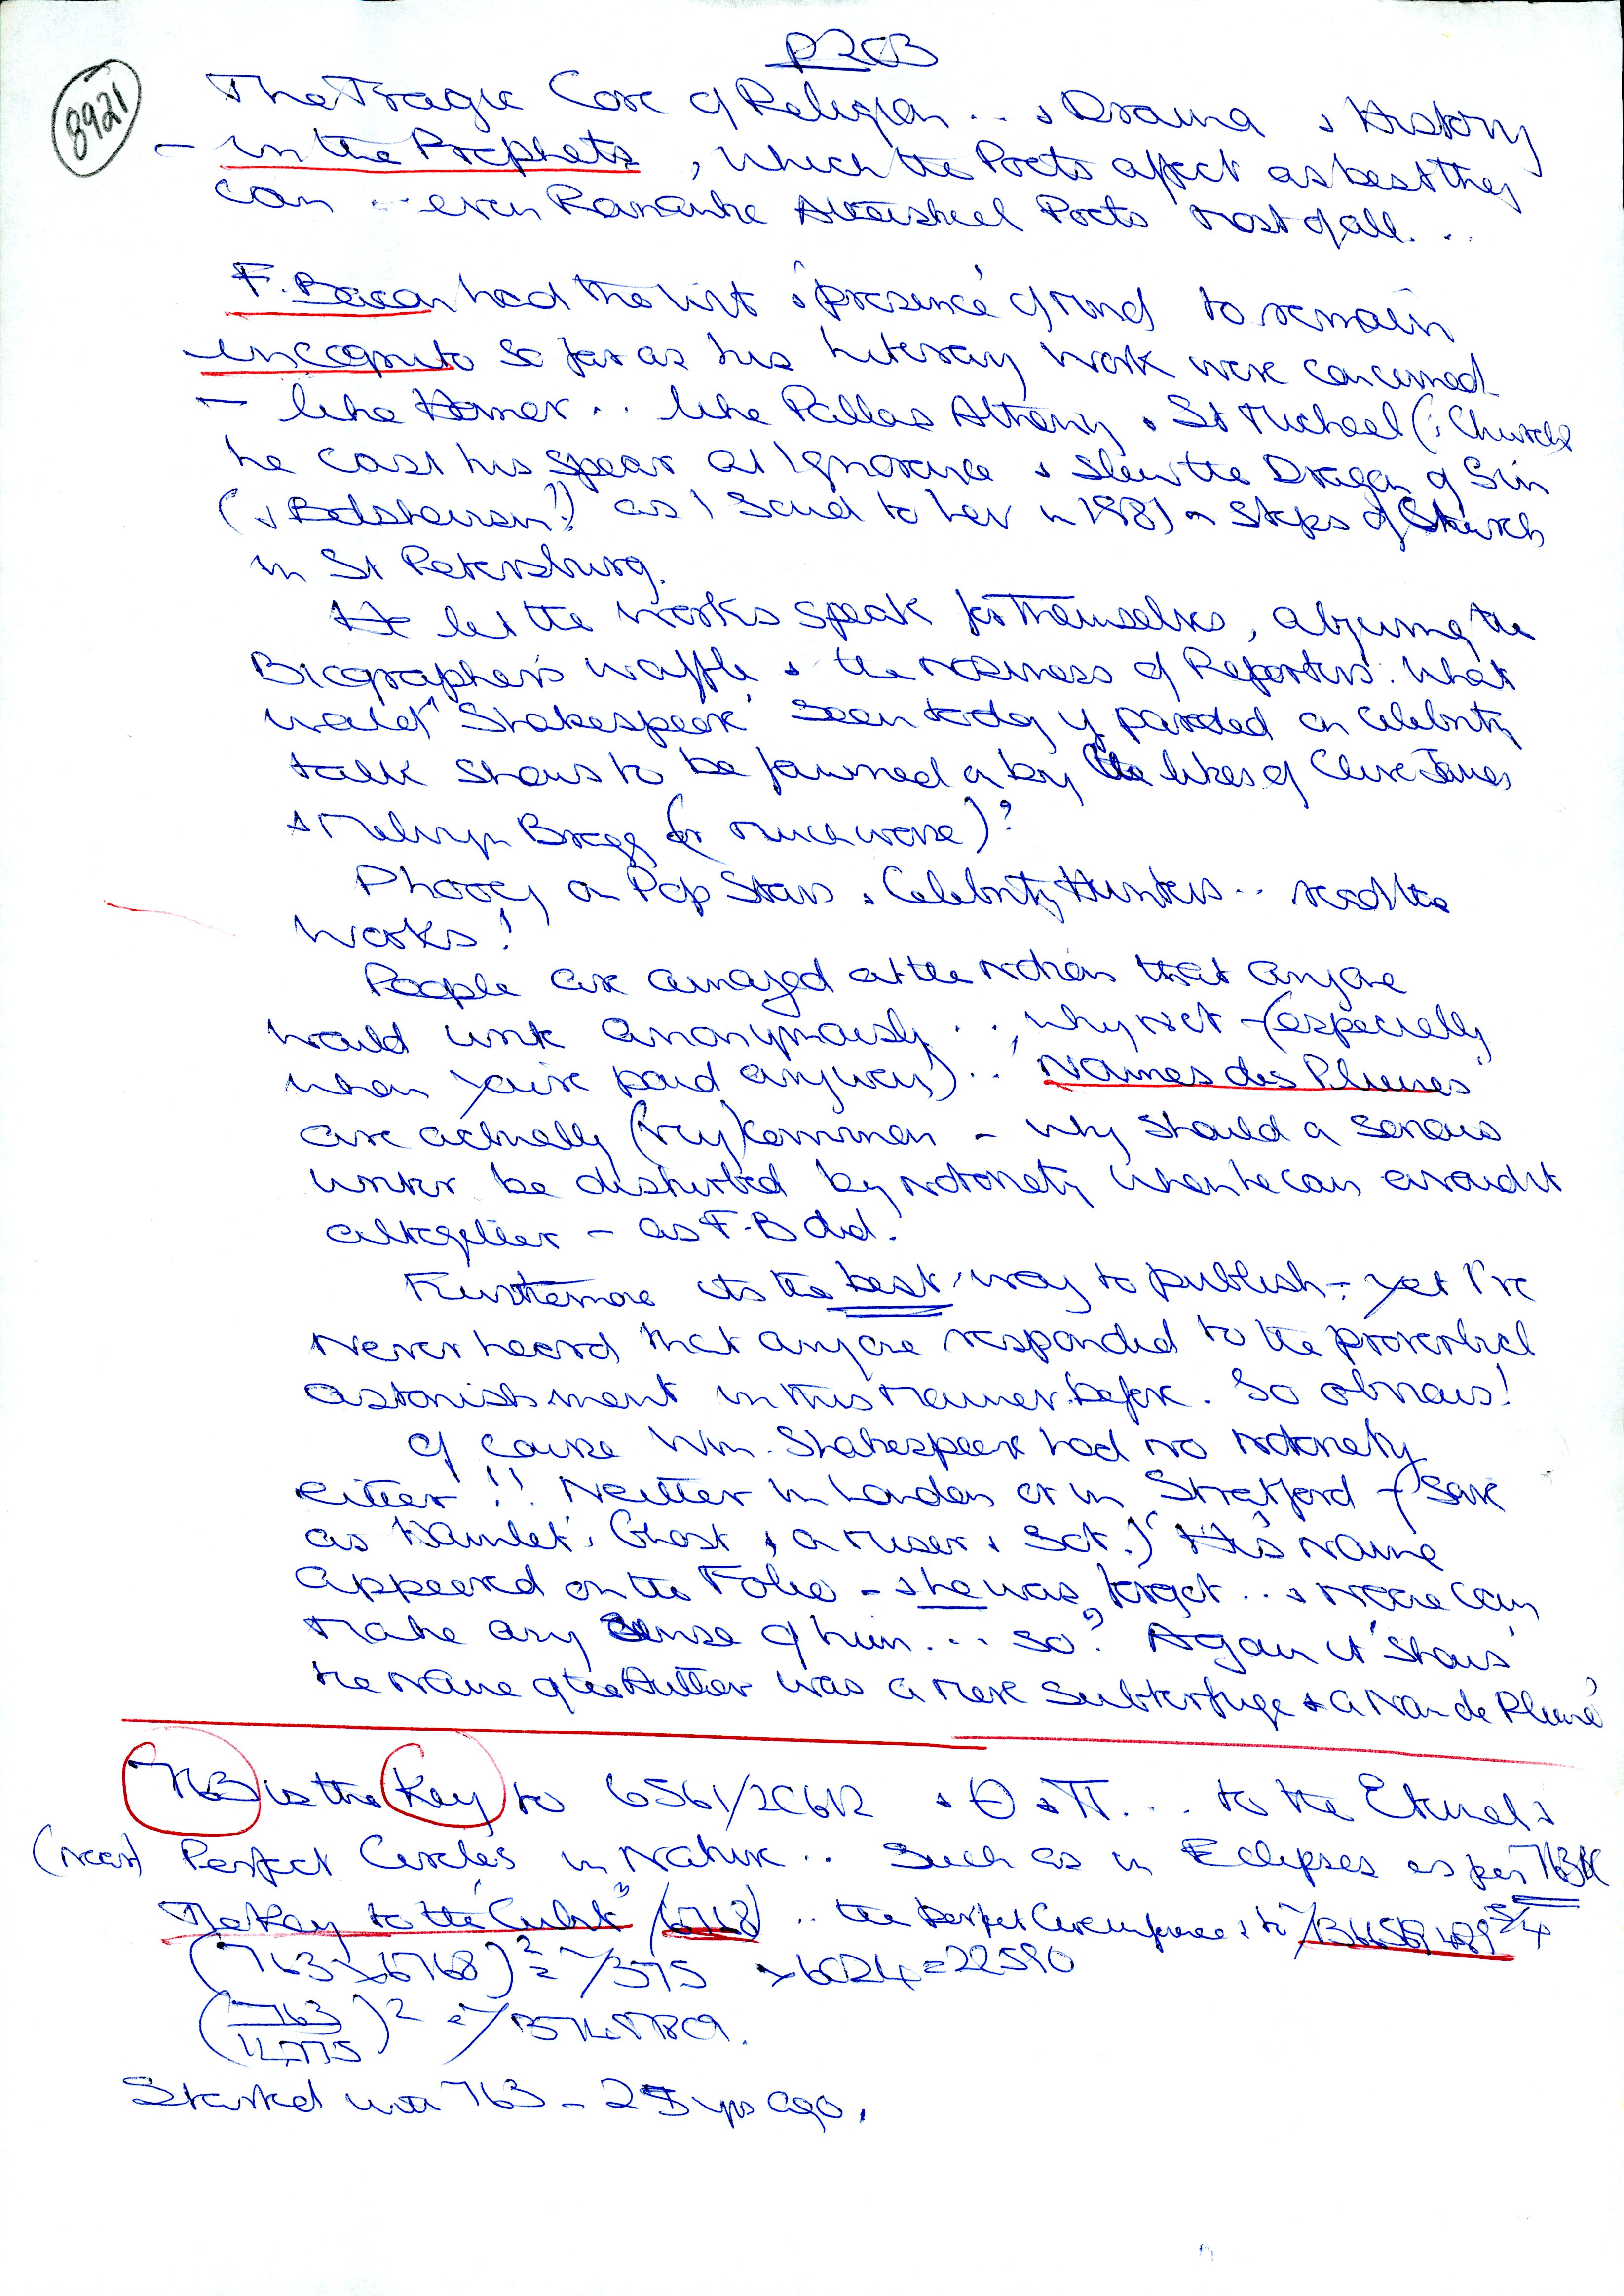 P203
8921
The Tragic Core of Religion .. & Drama & History
- in the Prophets, which the Poets affect as best they
can .. even Romantic Poets most of all. ..
F. Bacon had the wit & 'presence' of mind to remain
incognito so far as his literary work were concerned
- like Homer .. like Pallas Atheny & St Michael (: Church
he cast his spear at Ignorance & slew the Dragon of Sin
(& ) as I said to her in 1981 on steps of Church
in St Petersburg.
He let the works speak for Themselves, abjuring the
Biographer's waffle & the nosiness of Reporters. What
would 'Shakespeare' seen today if paraded on celebrity
talk shows to be fawned on by the likes of Clive James
& Melvyn Bragg (or much worse)?
Phooey on Pop Stars & Celebrity Hunters .. read the
works!
People are amazed at the notion that anyone
would write anonymously .., why not - (especially
when you're paid anyway) .. 'Names des Plumes'
are actually (very) common - why should a serious
writer be disturbed by notoriety when he can avoid it
altogether - as F.B did.
Furthermore its the best way to publish - yet I've
never heard that anyone responded to the proverbial
astonishment in this manner before. So obvious!
Of course Wm. Shakespeare had no notoriety
either!! Neither in London or in Stratford - (save
as Hamlet's Ghost & a miser & Sot.) His name
appeared on the Folio - & he was forgot .. & none can
make any sense of him ... so? Again it 'shows'
the name of the Author was a mere subterfuge & a Nom de Plume'
763 is the Key to 6561/20612 & Θ & π ... to the Eternal &
(near) Perfect Circles in Nature .. such as in Eclipses as per 763K
The Key to the 'Cubit' (6768) .. the perfect Circumference & to
(763 x 6768)² = 7/375 x 6024 = 22590
(763/)² =
Started with 763 - 25 yrs ago.